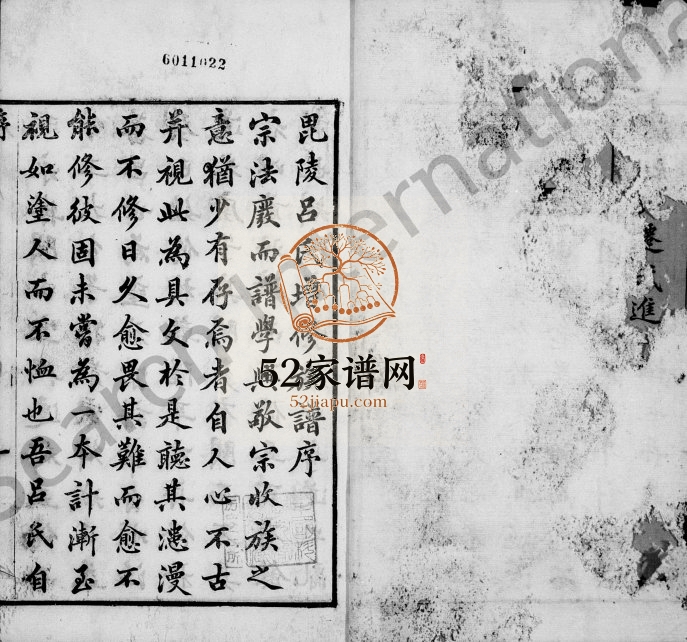 6011022
毘陵呂氏增修族譜序
宗法廢而譜學興敬宗收族之
意猶少有存焉者自人心不古
并視此為具文於是聽其漶漫
而不修日久愈畏其難而愈不
能修彼固未嘗為一本計漸至
視如塗人而不恤也吾呂氏自
序
一
遷
進
52家谱网
52jiapu.com
Search International